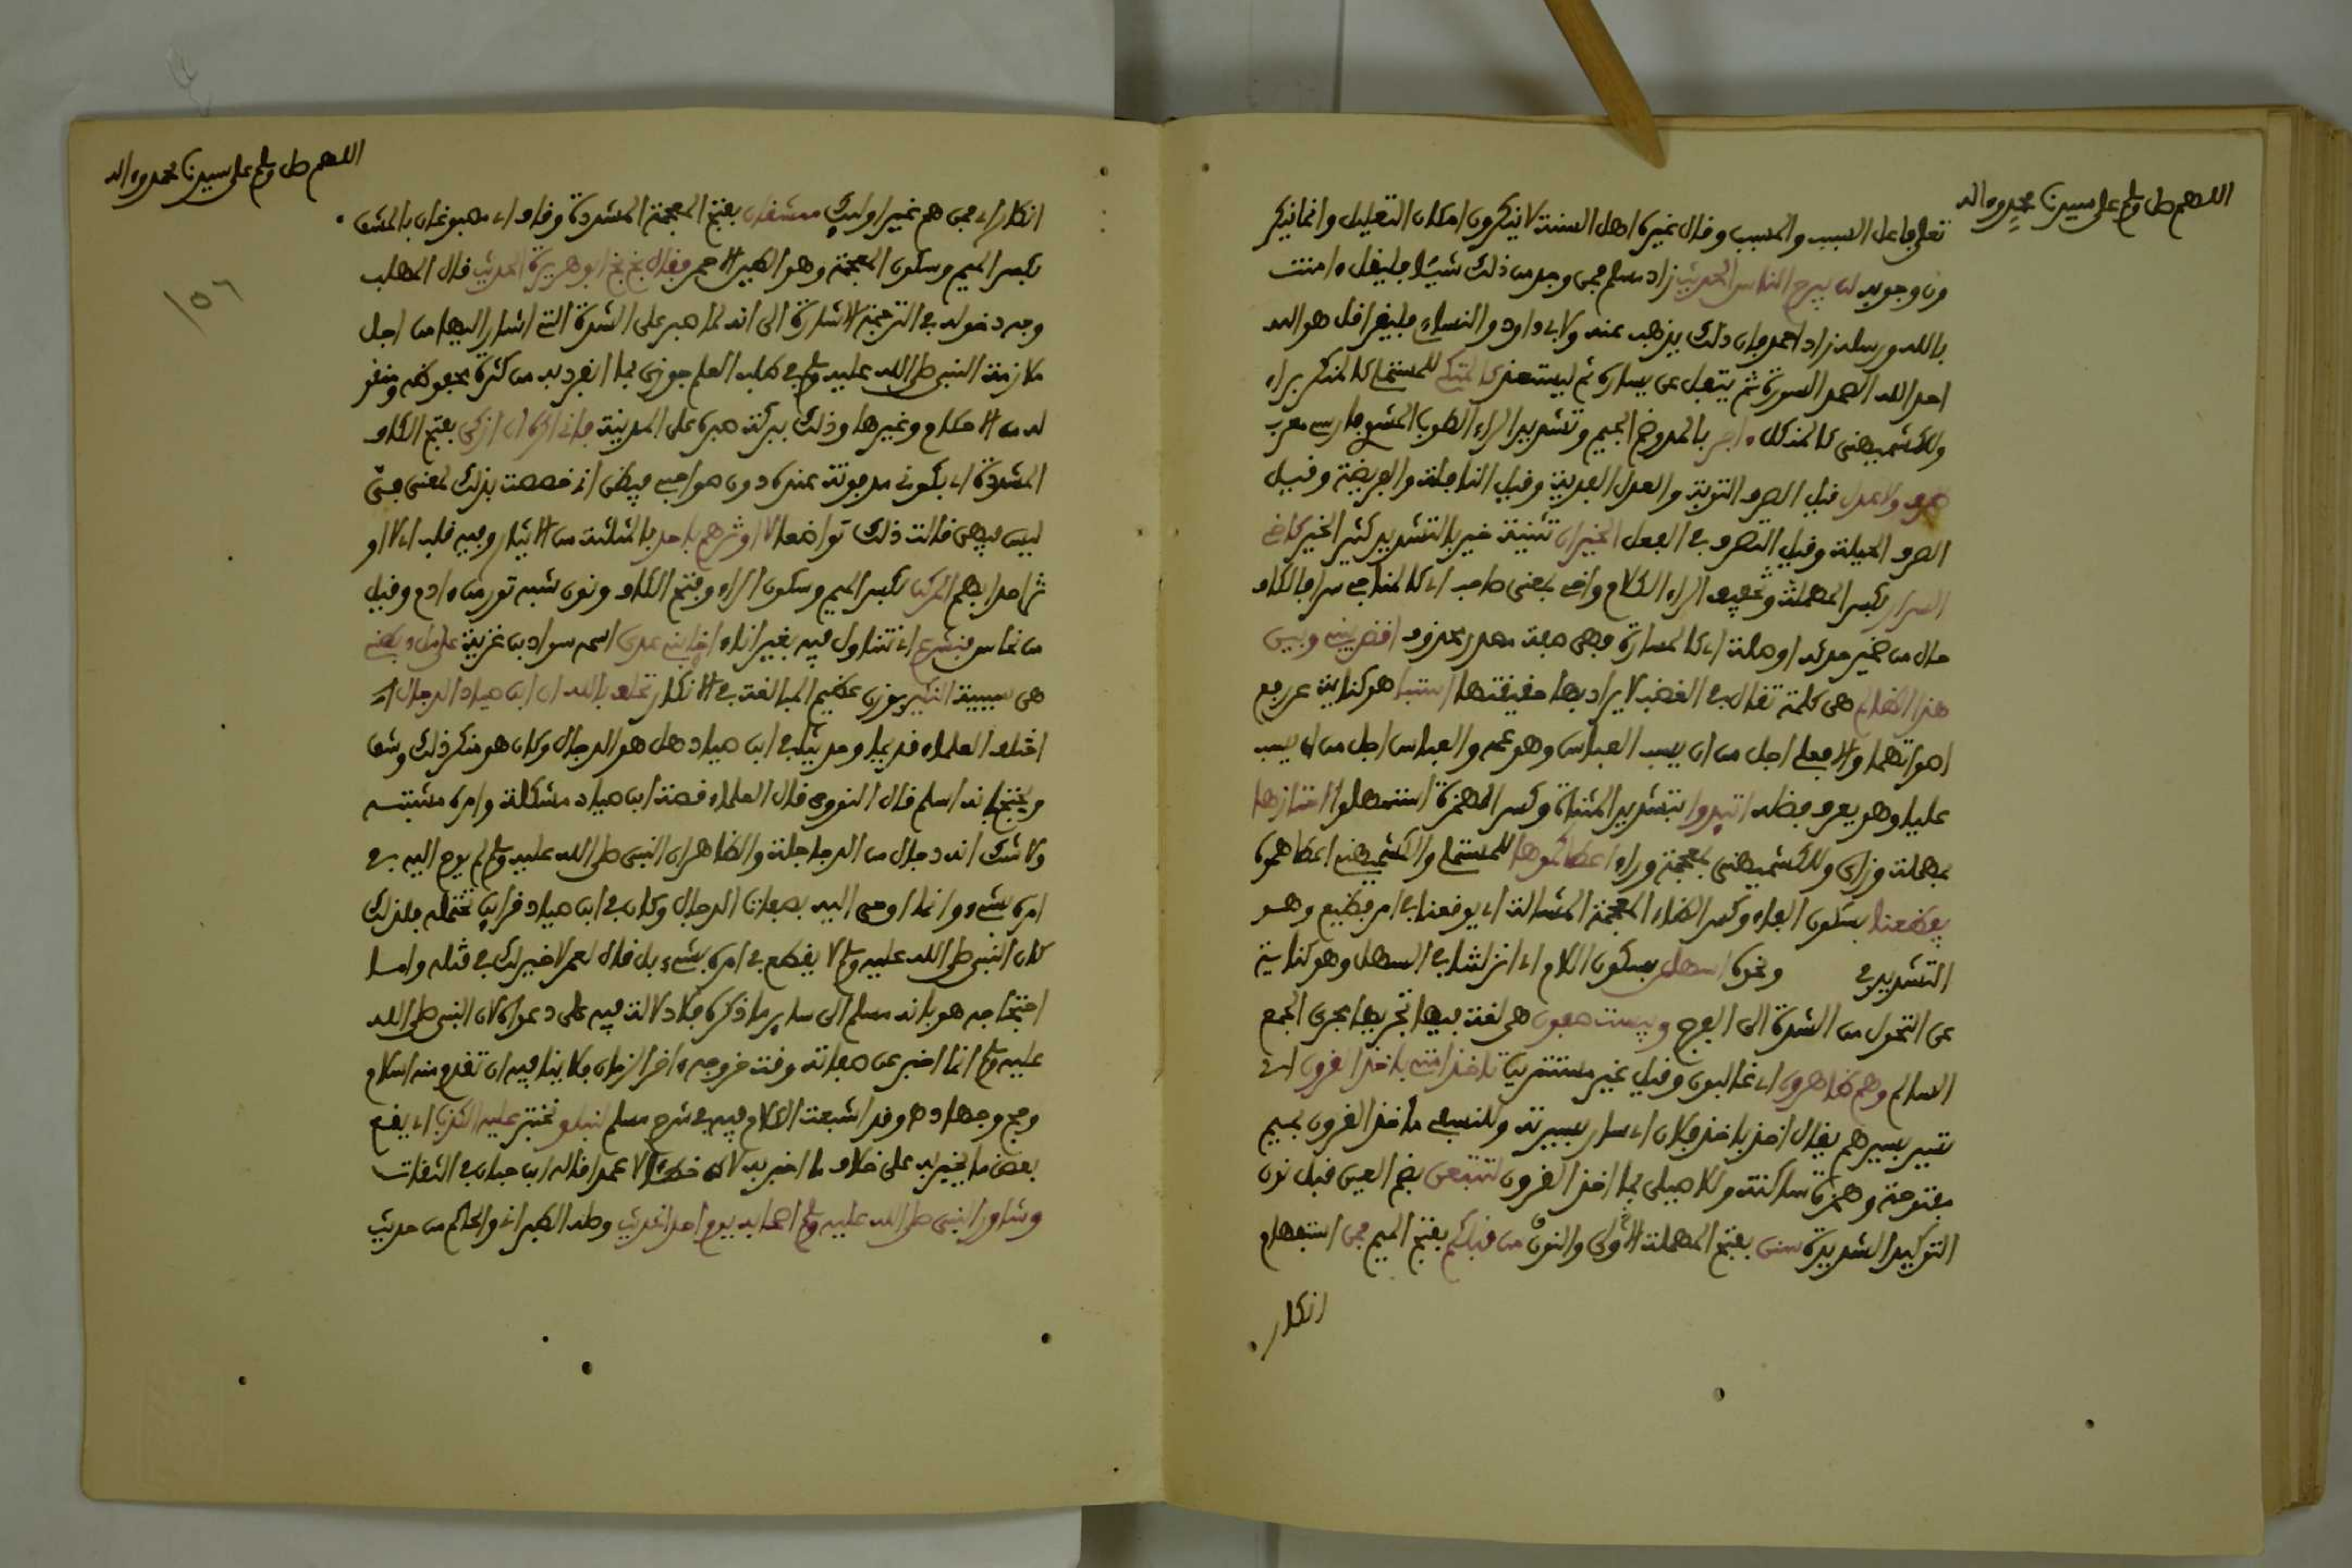 اللهم صل وسلم على سيدنا محمد وءاله
تعلق ما على السبب والمسبب وقال غيره اهل السنة لا ينكرون امكان التعليل وانما ينكر
ون وجوبه لن يبرح الناس الحديث زاد مسلم فمن وجد من ذلك شيئا فليقل ءامنت
بالله ورسله زاد احمد فان ذلك يذهب عنه ولابي داود والنساءي فليقرا قل هو الله
احد الله الصمد السورة ثم يتفل عن يساره ثم ليستعذ كالمتكي للمستملي كالمنكر براء
وللكشميهني كالمتكل ءاجر بالمد وضم الجيم وتشديد الراء الطوب المشوي فارسي معرب
صرف ولا عدل قيل الصرف التوبة والعدل الفدية وقيل النافلة والفريضة وقيل
الصرف الحيلة وقيل التصرف في الفعل الخيران تثنية خير بالتشديد كثير الخير كاخي
السرار بكسر المهملة وتخفيف الراء الكلام واخي بمعنى صاحب اي كالمناجي سرا فالكاف
حال من ضمير حدثه او صلة اي كالمسارة فهي صفة مصدر محذوف اقض بيني وبين
هذا الظالم هي كلمة تقال في الغضب لا يراد بها حقيقتها استبا هو كناية عن رفع
اصواتهما والا فعلي اجل من ان يسب العباس وهو عمه والعباس اجل من ان يسب
عليا وهو يعرف فضله اتيدوا بتشديد المثناة وكسر الهمزة استمهلوا احتازها
بمهملة وزاي وللكشميهني بمعجمة وراء اعطاكموها للمستملي والكشميهني اعطاهموها
يفظعنا بسكون الفاء وكسر الظاء المعجمة المشالة اي يوقعنا في امر فظيع وهو
الشديد في ونحوه اسهلن بسكون اللام اي انزلننا في السهل وهو كناية
عن التحول من الشدة الى الفرج وبيست صفون هي لغة فيها تجريها مجرى الجمع
السالم وهم ظاهرون اي غالبون وقيل غير مستترين تاخذ امتي باخذ القرون اي
تسير بسيرهم يقال اخذ باخذ فلان اي سار بسيرته وللنسفي ما اخذ القرون بميم
مفتوحة وهمزة ساكنة وللاصيلي بما اخذ القرون لتتبعن بضم العين قبل نون
التوكيد الشديدة سنن بفتح المهملة الاولى والنون من قبلكم بفتح الميم فمن استفهام
انكار
اللهم صل وسلم على سيدنا محمد وءاله
انكار اي فمن هم غير اوليك ممشقان بفتح المعجمة المشددة وقاف اي مصبوغان بالمشق
بكسر الميم وسكون المعجمة وهو الطين الاحمر فقال بخ بخ ابو هريرة الحديث قال المهلب
وجه دخوله في الترجمة الاشارة الى انه لما صبر على الشدة التي اشار اليها من اجل
ملازمة النبي صلى الله عليه وسلم في طلب العلم جوزي بما انفرد به من كثرة محفوظه ومنقو
له من الاحكام وغيرها وذلك ببركة صبره على المدينة فاني اكره ان ازكى بفتح الكاف
المشددة اي بكوني مدفونة عنده دون صواحبي فيظن اني خصصت بذلك لمعنى فيّ
ليس فيهن قالت ذلك تواضعا لا اوثرهم باحد بالمثلثة من الايثار وفيه قلب اي لا او
ثر احدا بهم المركن بكسر الميم وسكون الراء وفتح الكاف ونون شبه تور من ءادم وقيل
من نحاس فنشرع اي نتناول فيه بغير اناء اخا بني عدي اسمه سواد بن غزية على من ويعني
هي سببية النكير بوزن عظيم المبالغة في الانكار تحلف بالله ان ابن صياد الدجال
اختلف العلماء قديما وحديثا في ابن صياد هل هو الدجال وكان هو منكر ذلك وشق
ويحتج بانه اسلم قال النووي قال العلماء قصة ابن صياد مشكلة وامره مشتبه
ولا شك انه دجال من الدجاجلة والظاهر ان النبي صلى الله عليه وسلم لم يوح اليه في
امره بشيء وانما اوحي اليه بصفات الدجال وكان في ابن صياد قراين محتملة فلذلك
كان النبي صلى الله عليه وسلم لا يقطع في امره بشيء بل قال لعمر لا خير لك في قتله واما
احتجاجه هو بانه مسلم الى ساير ما ذكره فلا دلالة فيه على دعواه لان النبي صلى الله
عليه وسلم انما اخبر عن صفاته وقت خروجه ءاخر الزمان فلا ينافيه ان تقدم منه اسلام
وحج وجهاد هـ وقد اشبعت الكلام فيه في شرح مسلم لنبلو نختبر عليه الكذب اي يقع
بعض ما يخبر به على خلاف ما اخبر به لانه خطا لا عمد قاله ابن حبان في الثقات
وشاور النبي صلى الله عليه وسلم اصحابه يوم احد الحديث وصله الطبراني والحاكم من حديث
١٥٦